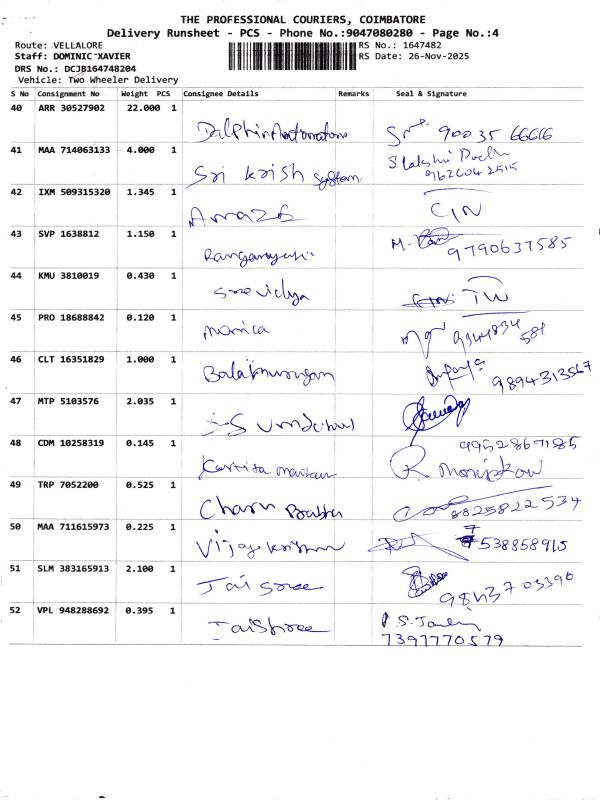 THE PROFESSIONAL COURIERS, COIMBATORE
Delivery Runsheet - PCS - Phone No.:9047080280 - Page No.:4
Route: VELLALORE RS No.: 1647482
Staff: DOMINIC XAVIER RS Date: 26-Nov-2025
DRS No.: DCJB164748204
Vehicle: Two Wheeler Delivery
S No Consignment No Weight PCS Consignee Details Remarks Seal & Signature
40 ARR 30527902 22.000 1
90035 66616
41 MAA 714063133 4.000 1
Sri Krish system
9626042515
42 IXM 509315320 1.345 1
CIN
43 SVP 1638812 1.150 1
M. 9790637585
44 KMU 3810019 0.430 1
Sree vidya TW
45 PRO 18688842 0.120 1
monica 9944834 581
46 CLT 16351829 1.000 1
Balamurugan 9894313567
47 MTP 5103576 2.035 1
48 CDM 10258319 0.145 1
9952867185
49 TRP 7052200 0.525 1
Charu 8825822534
50 MAA 711615973 0.225 1
7538858915
51 SLM 383165913 2.100 1
Jai Sree 9843703390
52 VPL 948288692 0.395 1
Jai Shree S.
7397770579